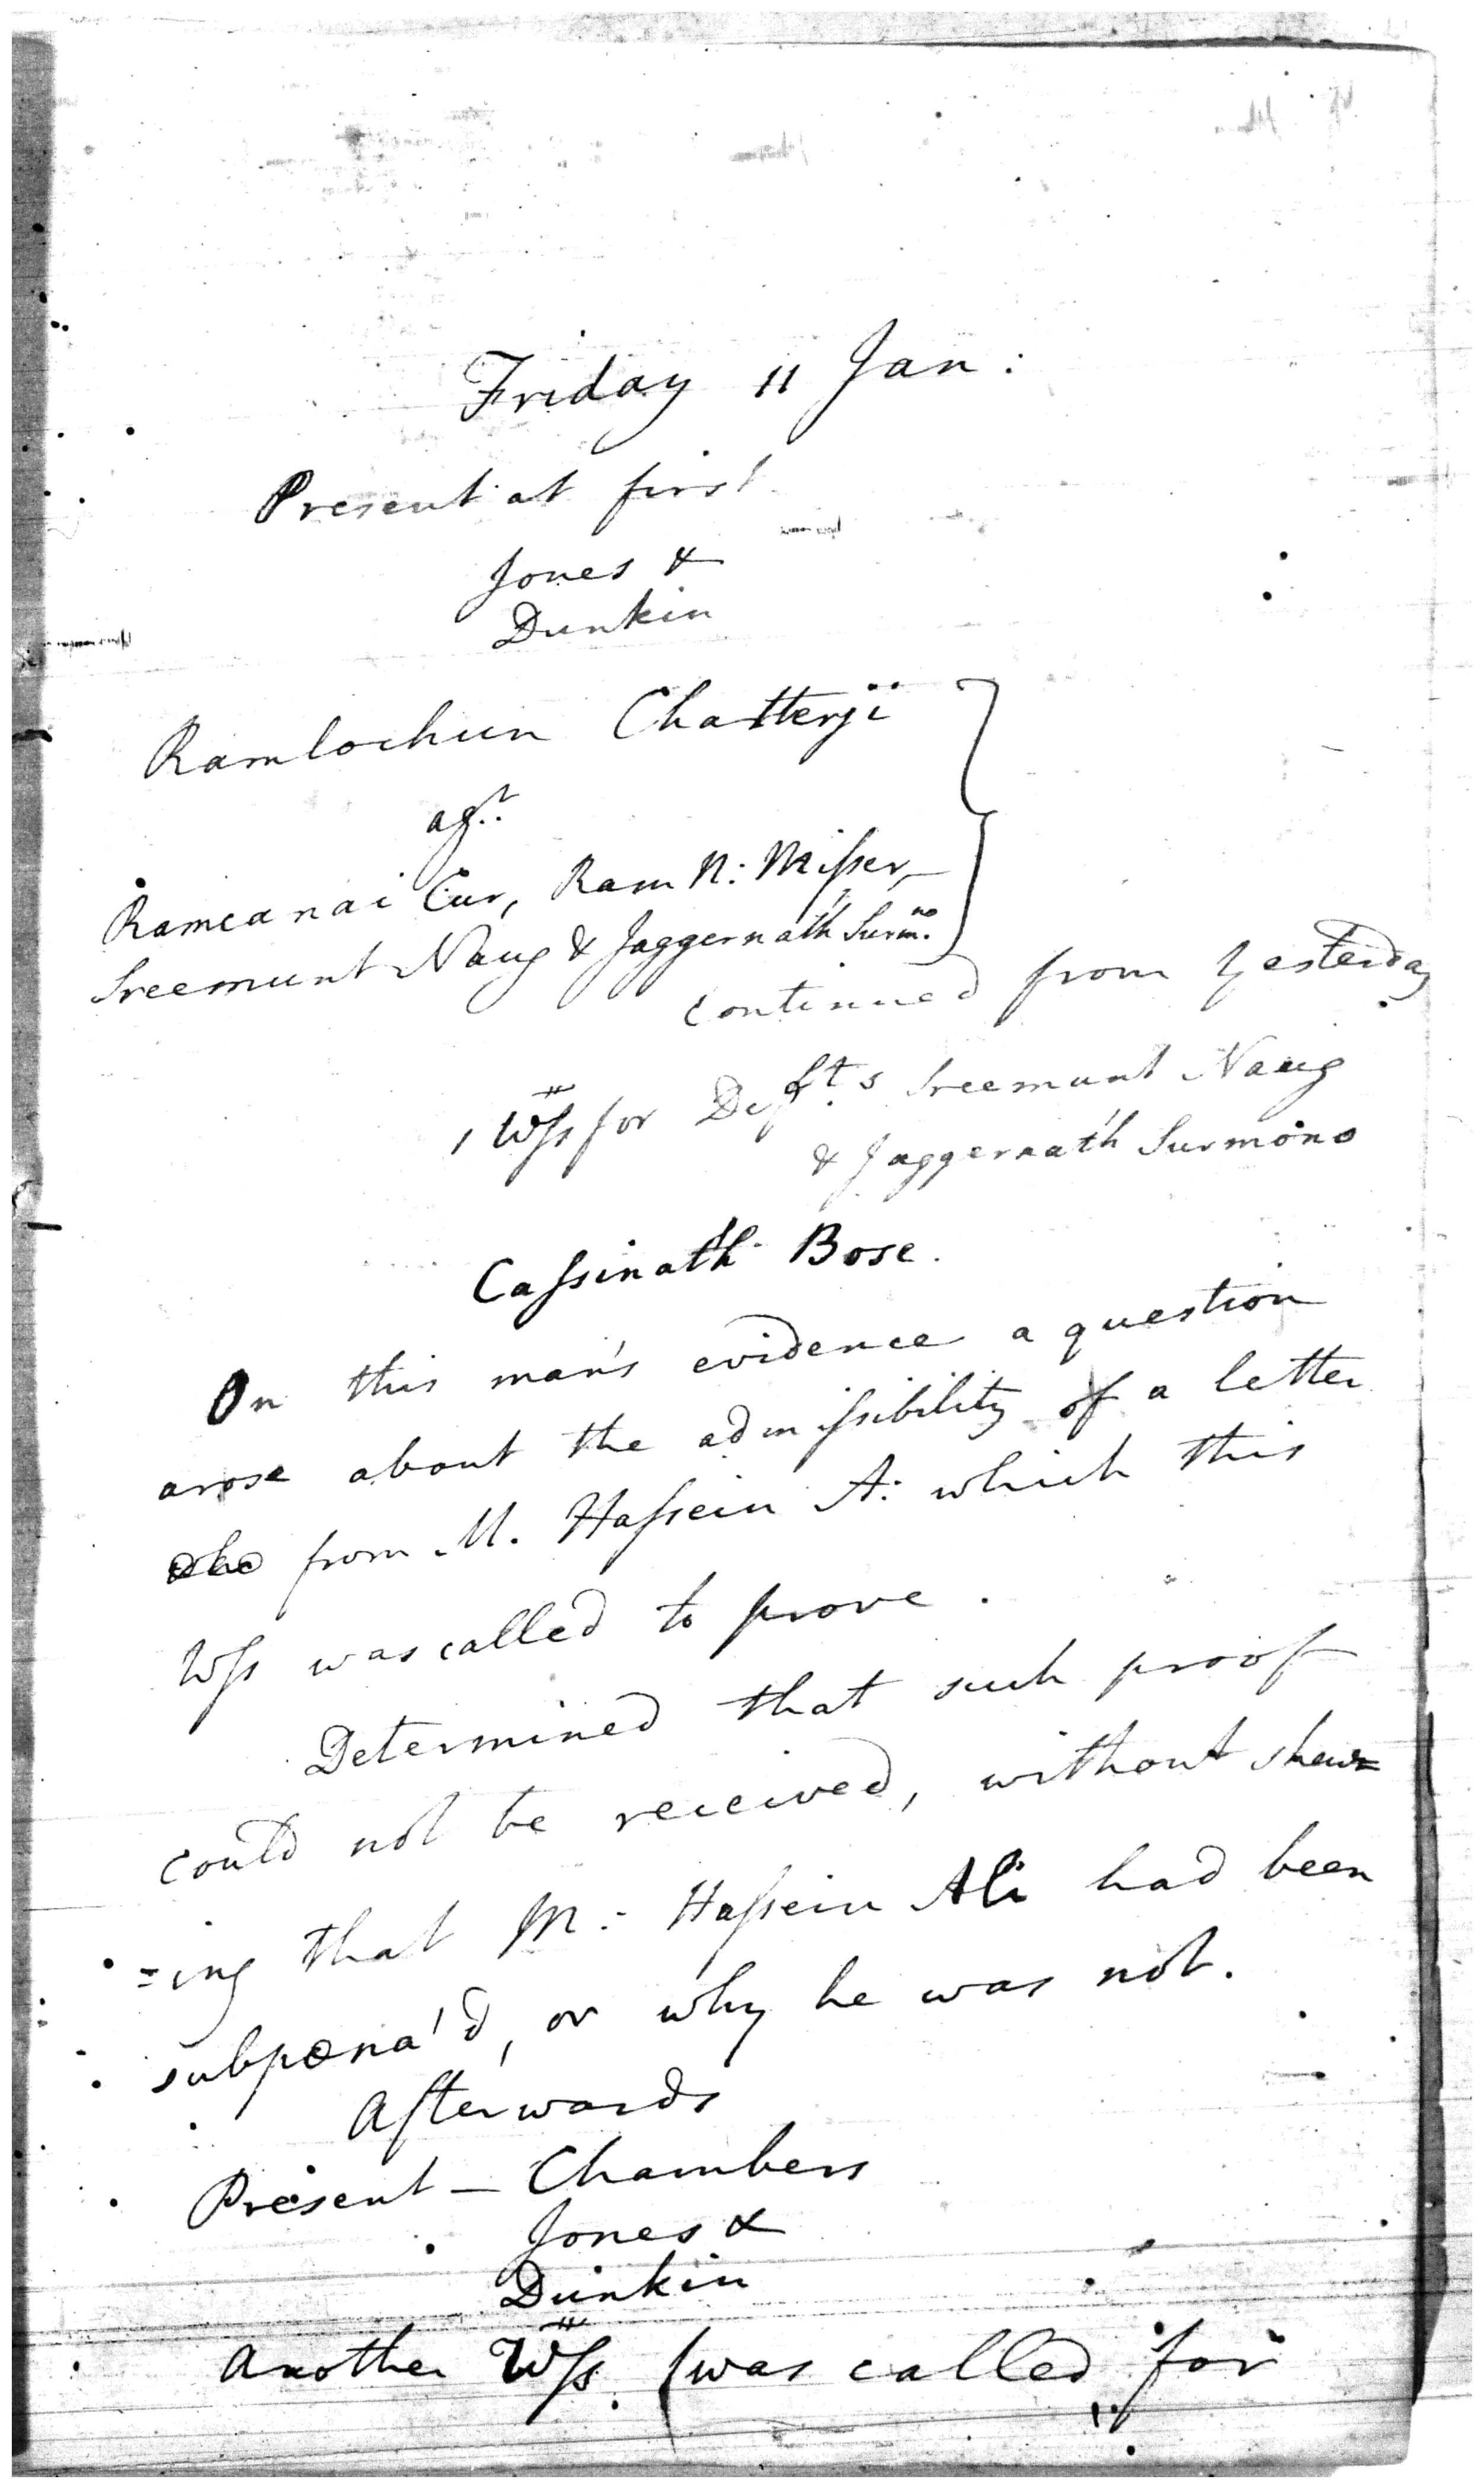 Friday 11 Jan:
Present at first
Jones &
Dunkin
Ramlochun Chatterji
agt.
Ramcanai Cur, Ram N: Misser,
Sreemunt Naug & Jaggernath Surmno.
continued from yesterday
1 Wss for Defts Sreemunt Naug
& Jaggernath Surmono
Cassinath Bose.
On this man's evidence a question
arose about the admissibility of a letter
from M. Hassein A: which this
Wss was called to prove.
Determined that such proof
could not be received, without shew=
=ing that M: Hassein Ali had been
subpœna'd, or why he was not.
Afterwards
Present – Chambers
Jones &
Dunkin
Another Wss. (was called for